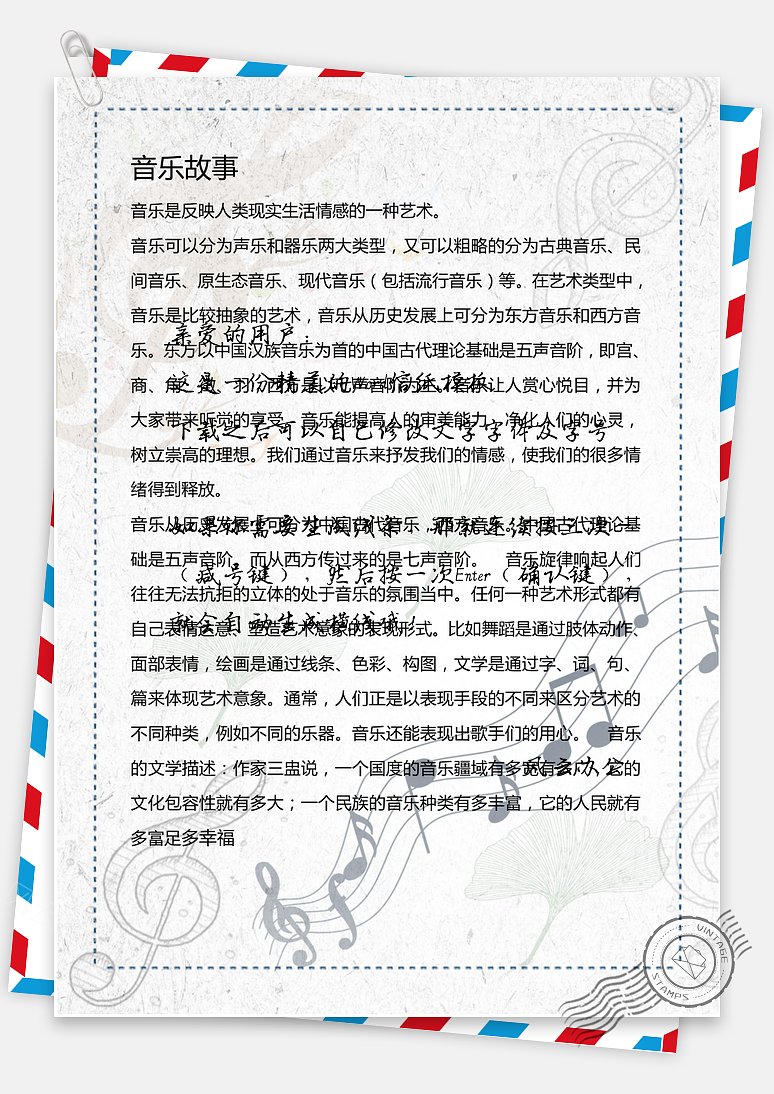 音乐故事
音乐是反映人类现实生活情感的一种艺术。
音乐可以分为声乐和器乐两大类型，又可以粗略的分为古典音乐、民
间音乐、原生态音乐、现代音乐（包括流行音乐）等。在艺术类型中，
音乐是比较抽象的艺术，音乐从历史发展上可分为东方音乐和西方音
亲爱的用户：
乐。东方以中国汉族音乐为首的中国古代理论基础是五声音阶，即宫、
商、角、徵、羽，西方是以七声音阶为主。音乐让人赏心悦目，并为
这是一份精美的word信纸模板
大家带来听觉的享受。音乐能提高人的审美能力，净化人们的心灵，
下载之后可以自己修改文字字体及字号
树立崇高的理想。我们通过音乐来抒发我们的情感，使我们的很多情
绪得到释放。
音乐从历史发展上可分为中国古代音乐，西方音乐。中国古代理论基
如果你需要生成线条，那就连续按三次-
础是五声音阶，而从西方传过来的是七声音阶。 音乐旋律响起人们
（减号键），然后按一次Enter（确认键），
往往无法抗拒的立体的处于音乐的氛围当中。任何一种艺术形式都有
就会自动生成横线哦！
自己表情达意、塑造艺术意象的表现形式。比如舞蹈是通过肢体动作、
面部表情，绘画是通过线条、色彩、构图，文学是通过字、词、句、
篇来体现艺术意象。通常，人们正是以表现手段的不同来区分艺术的
不同种类，例如不同的乐器。音乐还能表现出歌手们的用心。 音乐
的文学描述：作家三盅说，一个国度的音乐疆域有多宽有多广，它的
风云办公
文化包容性就有多大；一个民族的音乐种类有多丰富，它的人民就有
多富足多幸福
VINTAGE
STAMPS